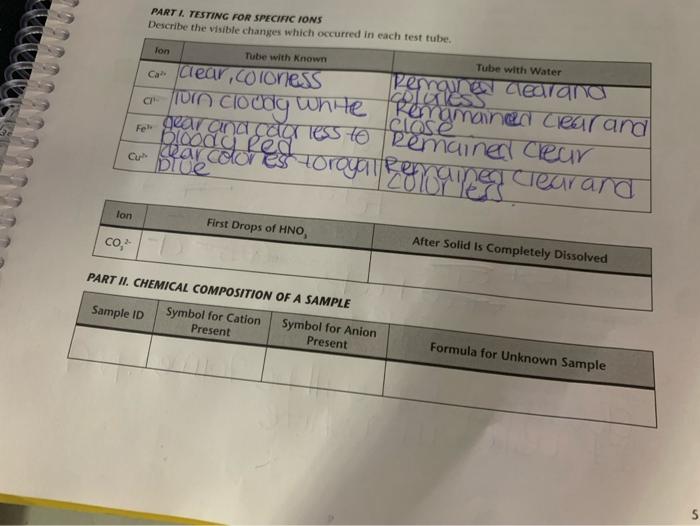 PART I. TESTING FOR SPECIFIC IONS
Describe the visible changes which occurred in each test tube.
Ion Tube with Known Tube with Water
Ca²⁺ clear, colorless Remained clear and
colorless
Cl⁻ Turn cloudy white Remamained clear and
close
Fe³⁺ clear and color less to Remained clear
bloody Red
Cu²⁺ clear colorless to royal Remained clear and
blue color less
Ion First Drops of HNO₃ After Solid Is Completely Dissolved
CO₃²⁻
PART II. CHEMICAL COMPOSITION OF A SAMPLE
Sample ID Symbol for Cation Symbol for Anion Formula for Unknown Sample
Present Present
S